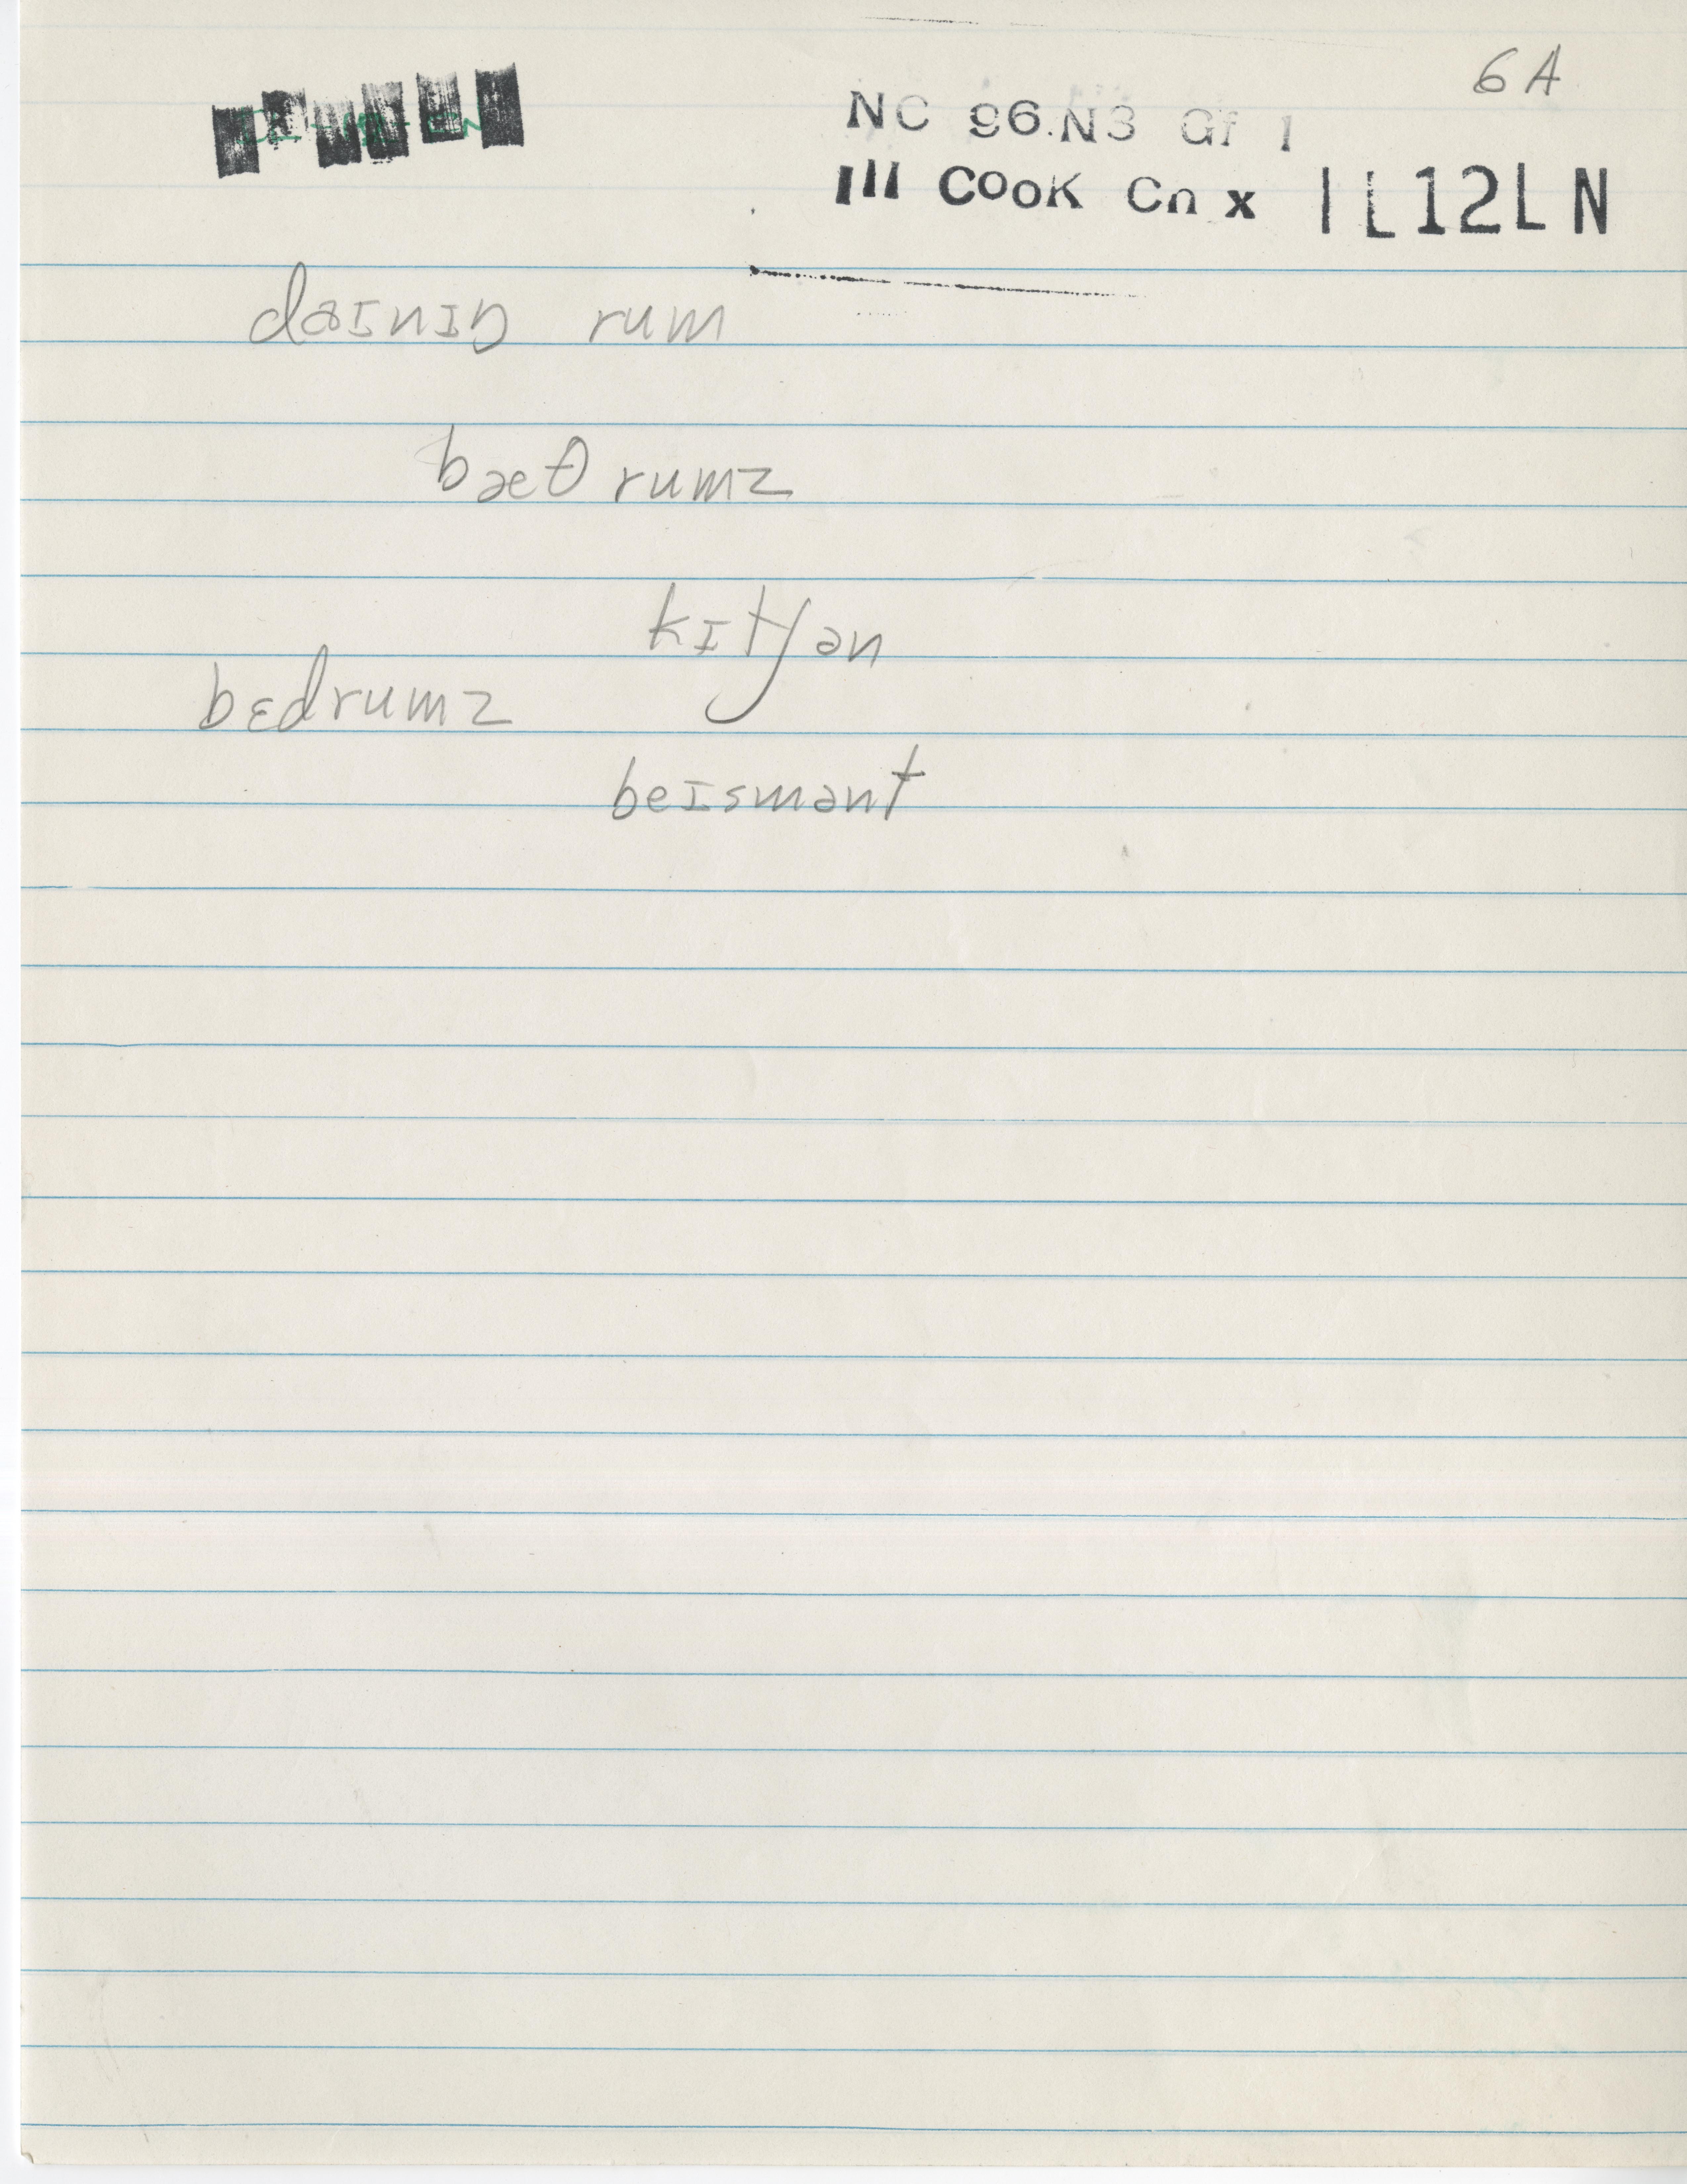 6A
NC 96.N3 Gf 1
Ill Cook Cn x IL12LN
daɪnɪŋ rum
bæθ rumz
kɪtʃən
bɛdrumz
beɪsmənt